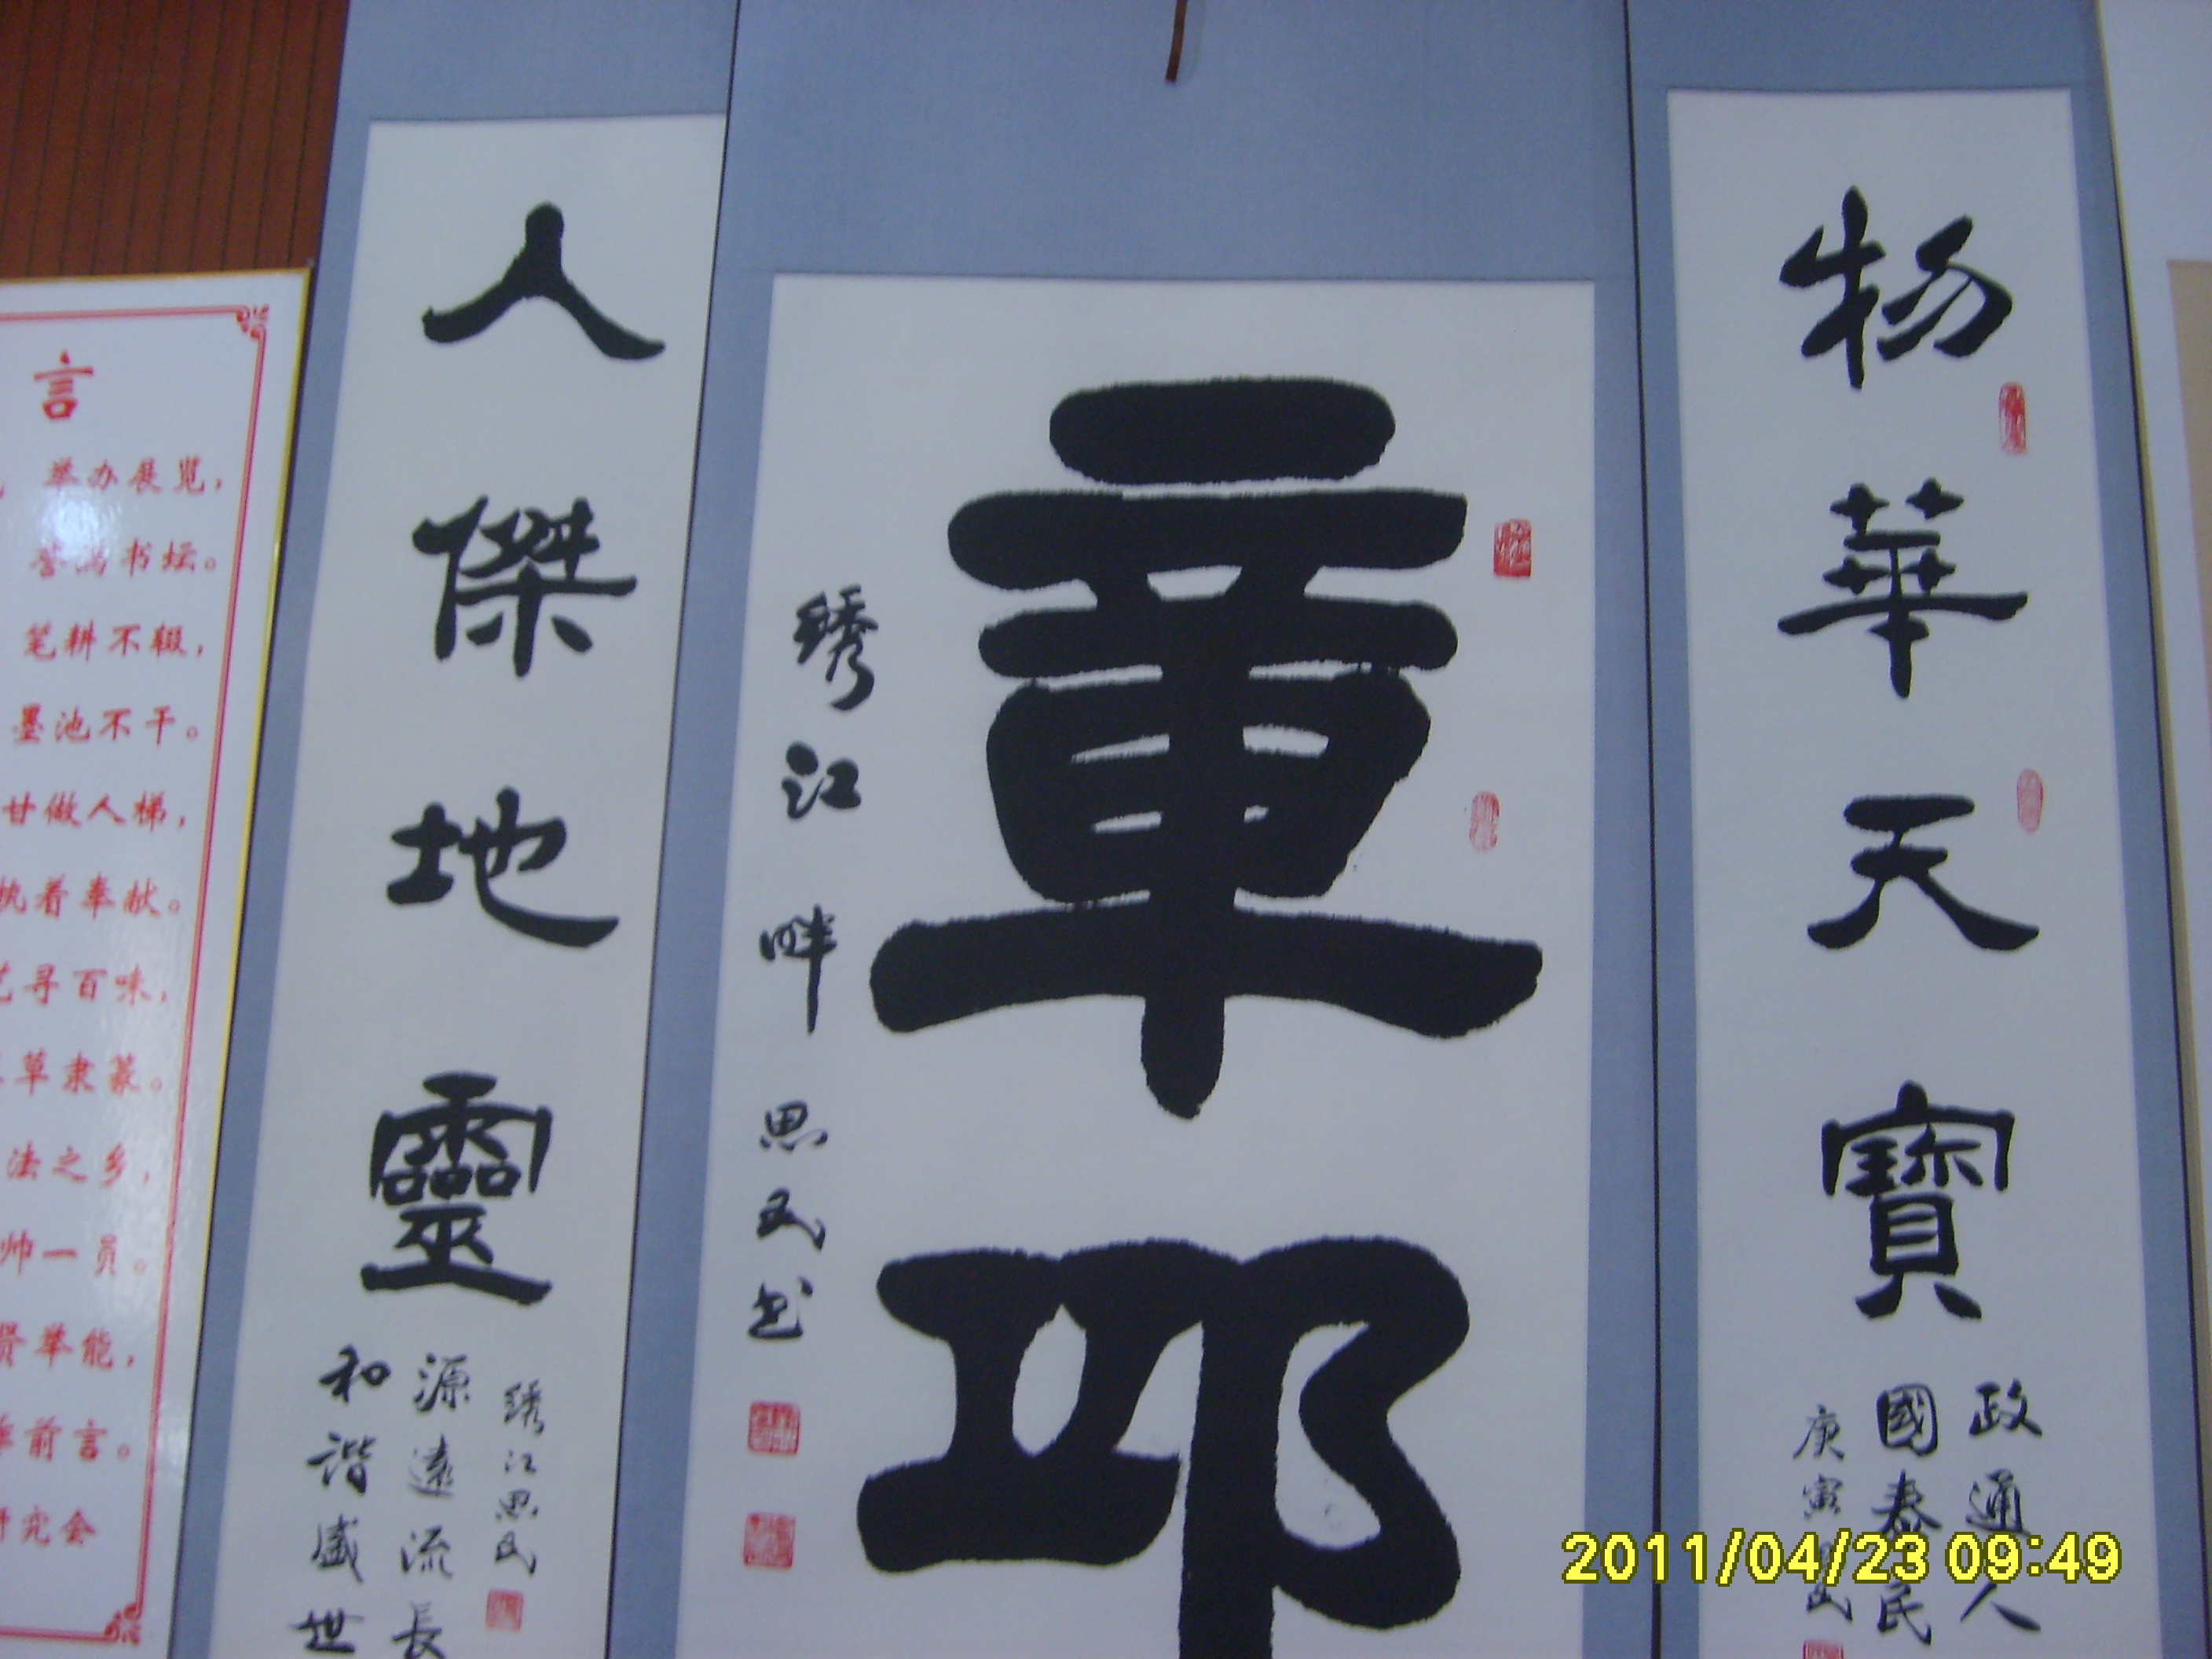 物華天寶
政通人
國泰民
庚寅
章邱
绣江畔思民书
人傑地靈
绣江思民
源遠流長
和諧盛世
言
举办展览，
誉满书坛。
笔耕不辍，
墨池不干。
甘做人梯，
执着奉献。
艺寻百味，
草隶篆。
法之乡，
帅一员。
贤举能，
前言。
研究会
2011/04/23 09:49